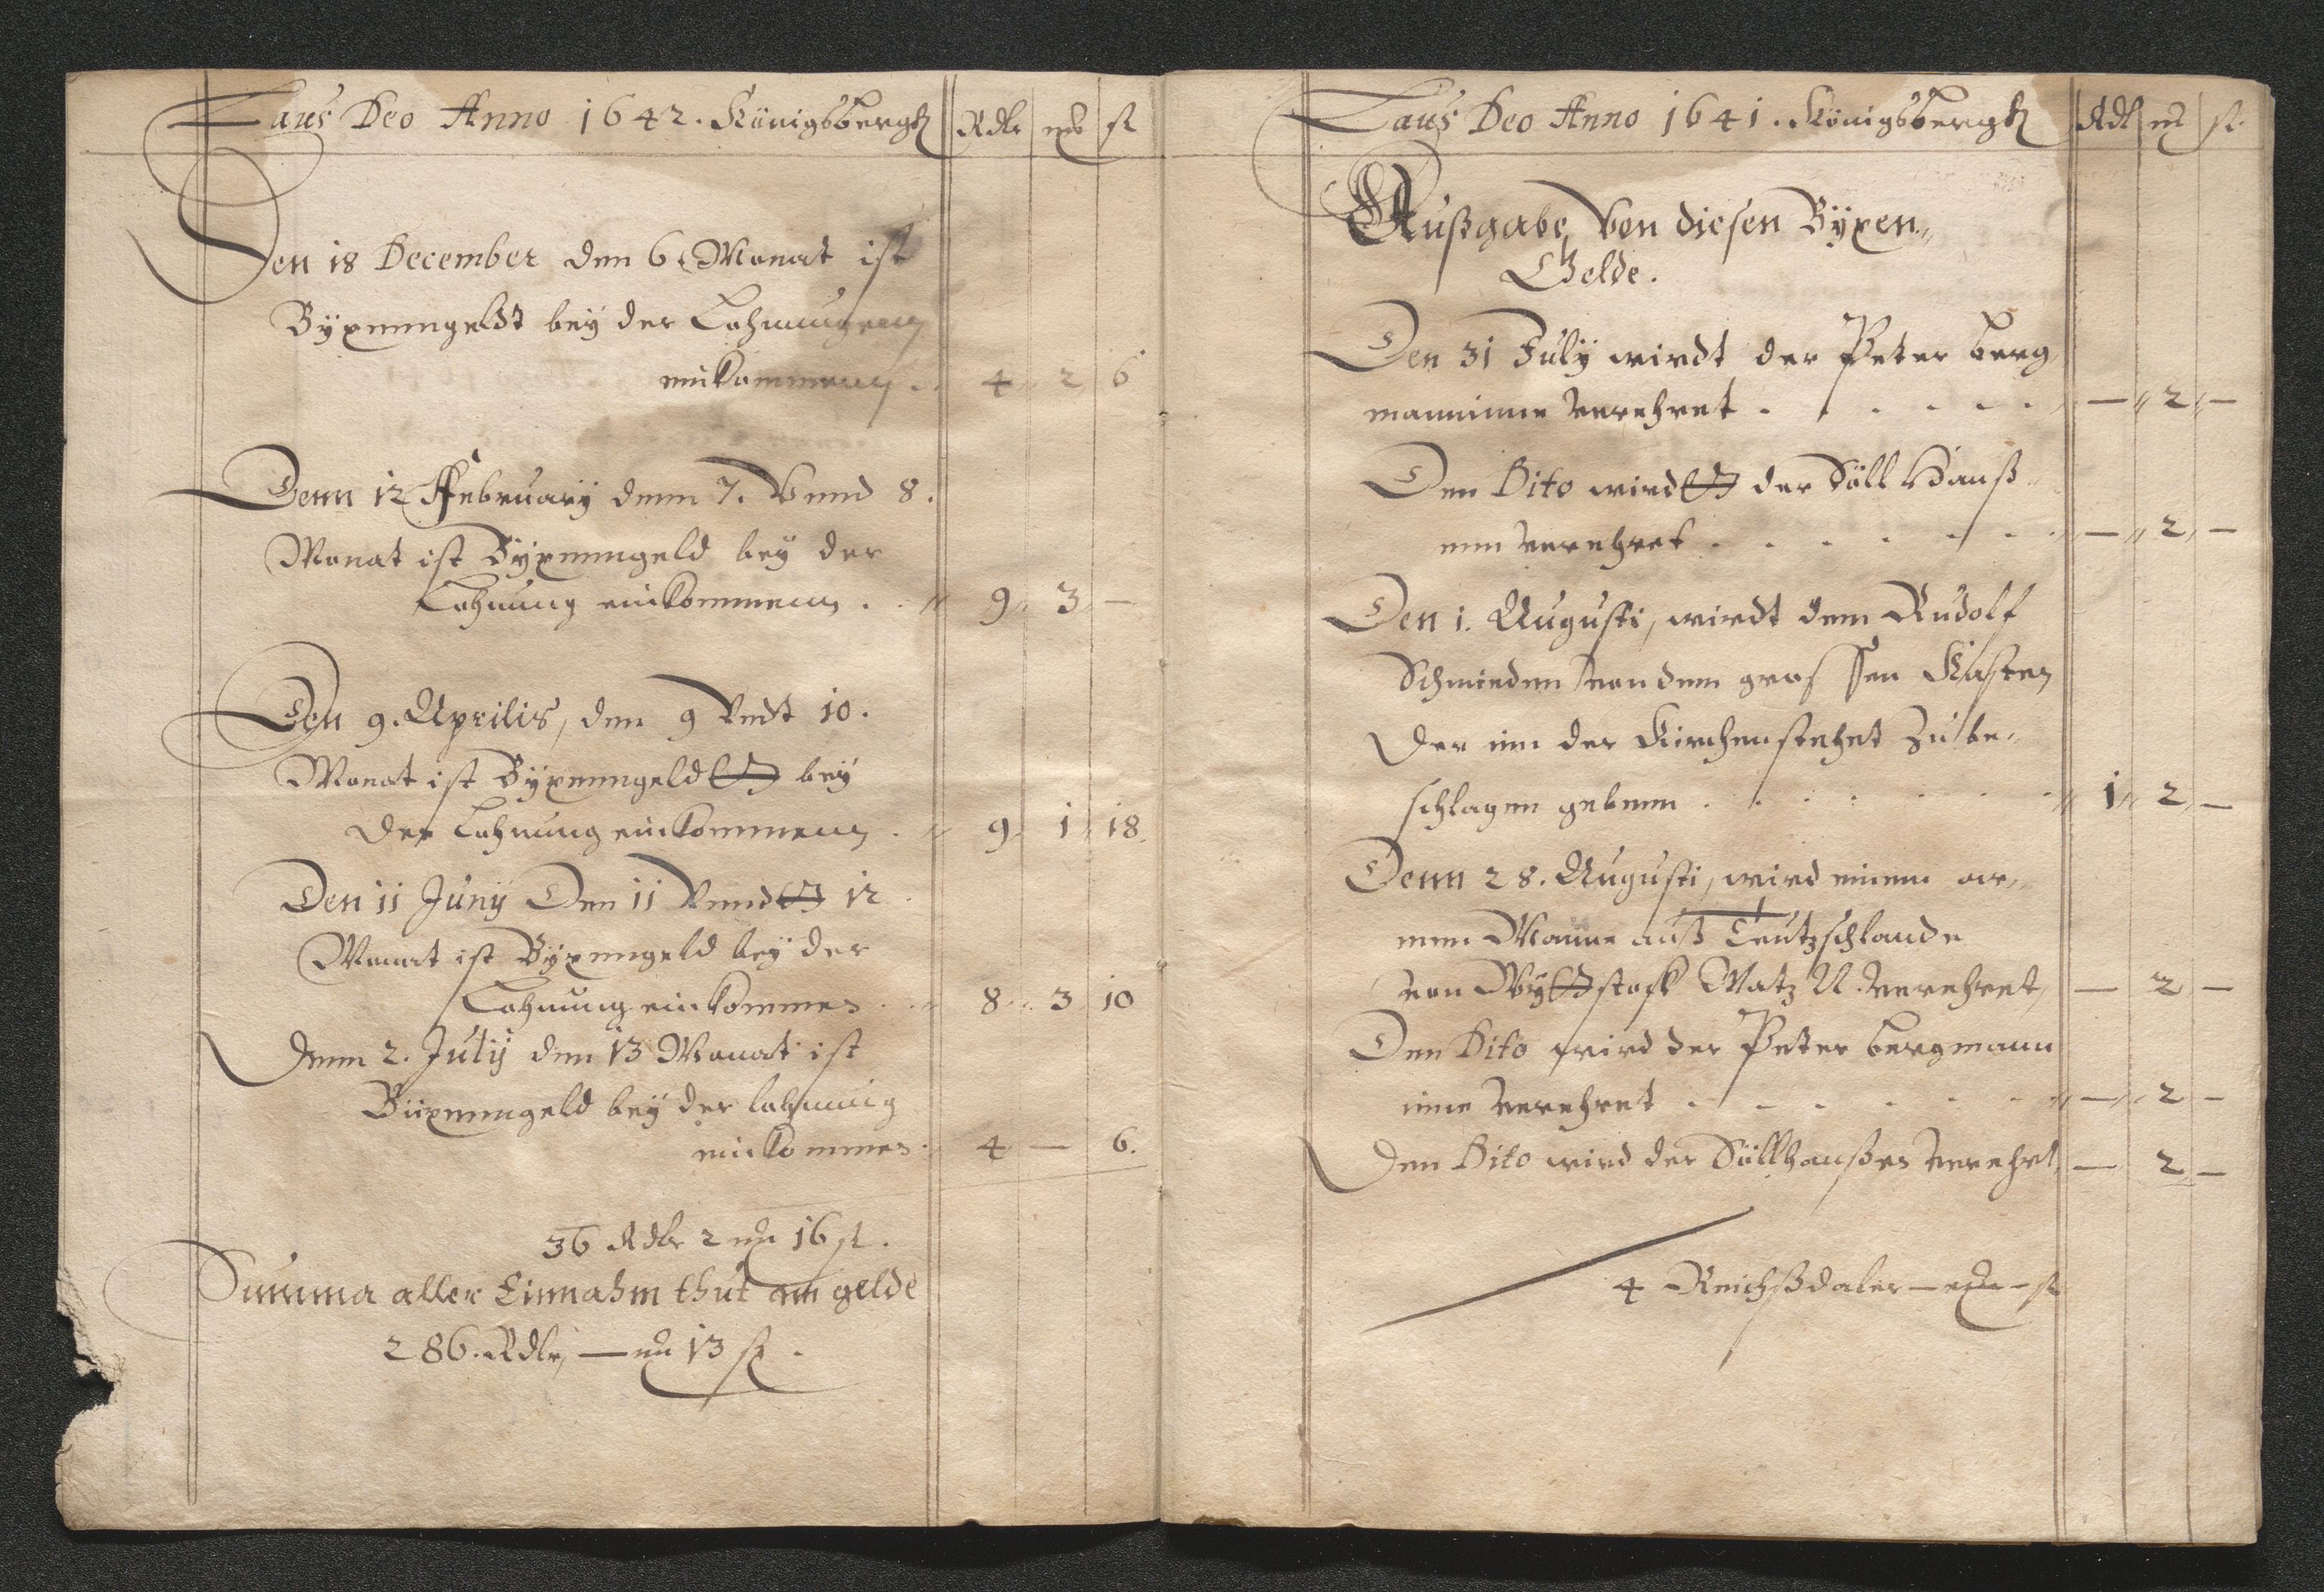 Laus Deo Anno 1642. Königsbergh Rdlr mk ß
Den 18 December den 6 Monat ist
Byxenngeldt bey der Lohnungenn
einkommenn .. 4 2 6
Denn 12 February denn 7. Vnnd 8.
Monat ist Byxenngeld bey der
Lohnung einkommenn . . 9 3 —
Den 9. Aprilis, den 9 Vndt 10.
Monat ist Byxenngeldt bey
der Lohnung einkommenn . 9 1 18.
Den 11 Juny Den 11 Vnndt 12
Monat ist Byxengeld bey der
Lohnung einkommen . . 8 3 10
Denn 2. July den 13 Monat ist
Büxenngeld bey der lohnung
einkommen . 4 — 6.
36 Rdlr 2 mk 16 ß.
Summa aller Einnahm thut an gelde
286. Rdlr, — mk 13 ß.
Laus Deo Anno 1641. Königsbergh Rdl mk ß.
Außgabe, Von diesen Byxen„
Gelde.
Den 31 July wirdt der Peter berg
manninne verehret . . . . . . — 2 —
Den Dito wirdt der Söll Hanß„
enn verehret . . . . . . — 2 —
Den 1. Augusti, wirdt dem Rudolf
Schmieden von dem grossen Kasten
der inn der Kirchen stehet Zu be„
schlagen gebenn . . . . . . 1 2 —
Denn 28. Augusti, wird einem ar„
men Manne auß Teutzschlande
von Matz N. verehret, — 2 —
Den Dito wird der Peter bergmann
inne verehret . . . . . . — 2 —
Den Dito wird der Söllhanßen verehrt, — 2 —
4 Reichßdaler — mk — ß